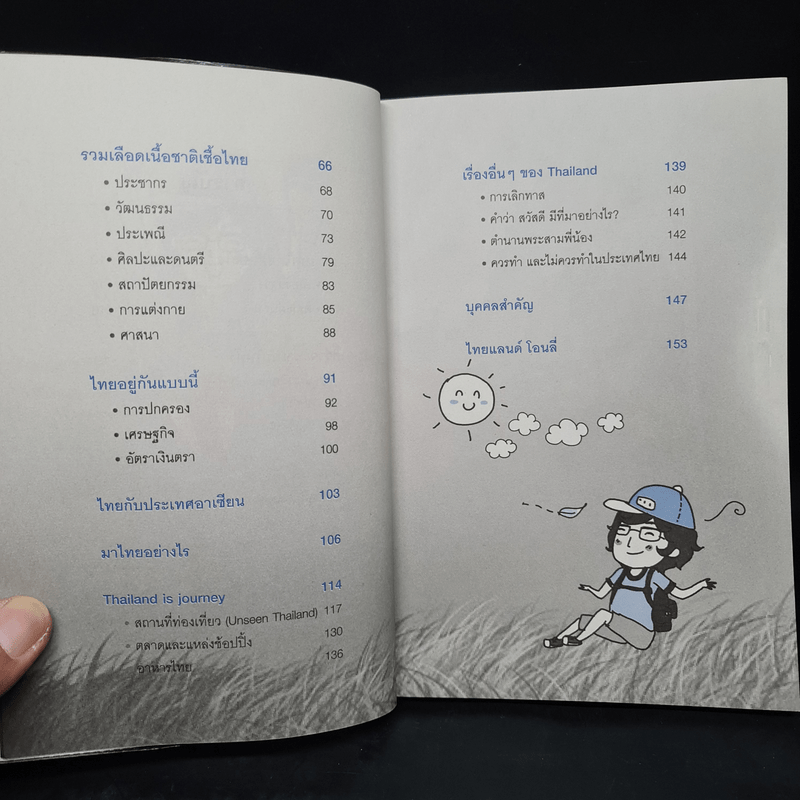 รวมเลือดเนื้อชาติเชื้อไทย 66
• ประชากร 68
• วัฒนธรรม 70
• ประเพณี 73
• ศิลปะและดนตรี 79
• สถาปัตยกรรม 83
• การแต่งกาย 85
• ศาสนา 88
ไทยอยู่กันแบบนี้ 91
• การปกครอง 92
• เศรษฐกิจ 98
• อัตราเงินตรา 100
ไทยกับประเทศอาเซียน 103
มาไทยอย่างไร 106
Thailand is journey 114
• สถานที่ท่องเที่ยว (Unseen Thailand) 117
• ตลาดและแหล่งช้อปปิ้ง 130
อาหารไทย 136
เรื่องอื่นๆ ของ Thailand 139
• การเลิกทาส 140
• คำว่า สวัสดี มีที่มาอย่างไร? 141
• ตำนานพระสามพี่น้อง 142
• ควรทำ และไม่ควรทำในประเทศไทย 144
บุคคลสำคัญ 147
ไทยแลนด์ โอนลี่ 153